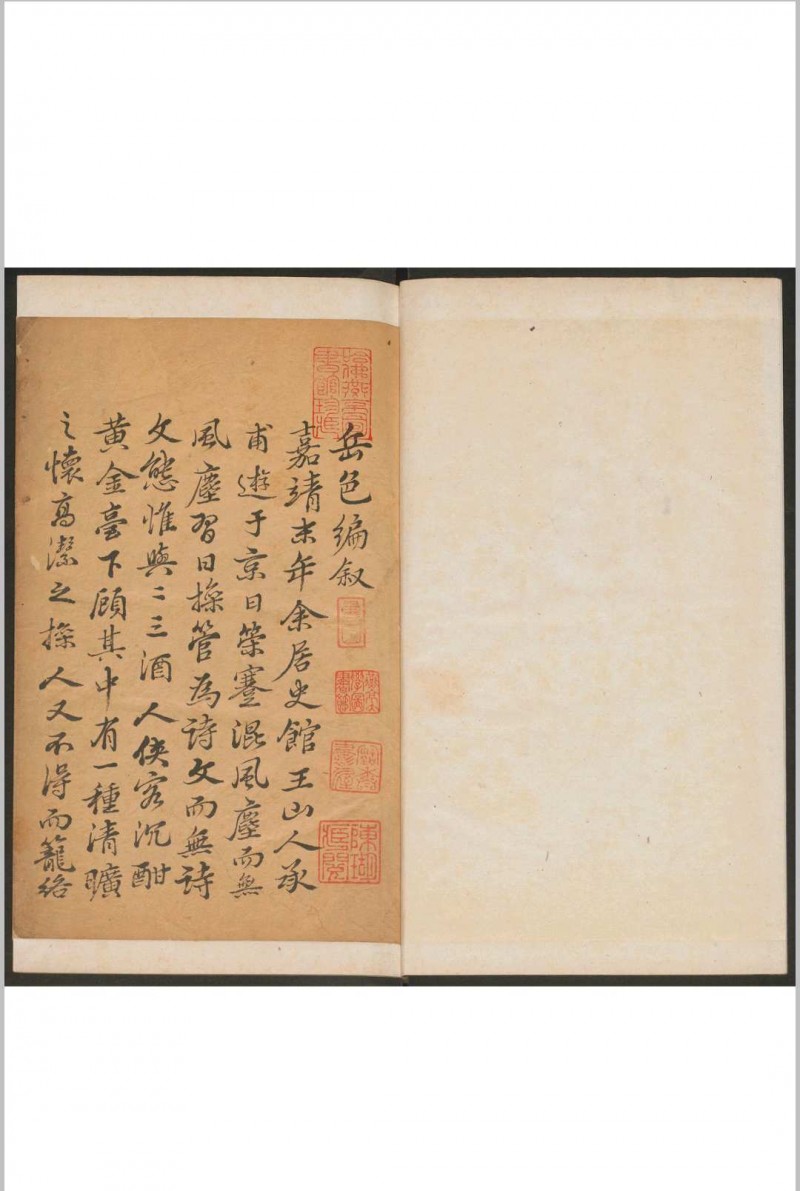 岳色編叙
嘉靖末年余居史館王山人承
甫遊于京日策蹇混風塵而無
風塵習日操管為詩文而無詩
文態惟與二三酒人俠客沉酣
黃金臺下顧其中有一種清曠
之懷高潔之操人又不得而籠絡
陳瑚